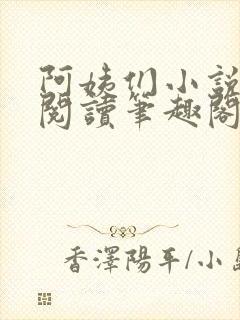 阿姨们小說
閱讀筆趣閣
香澤陽平/小島